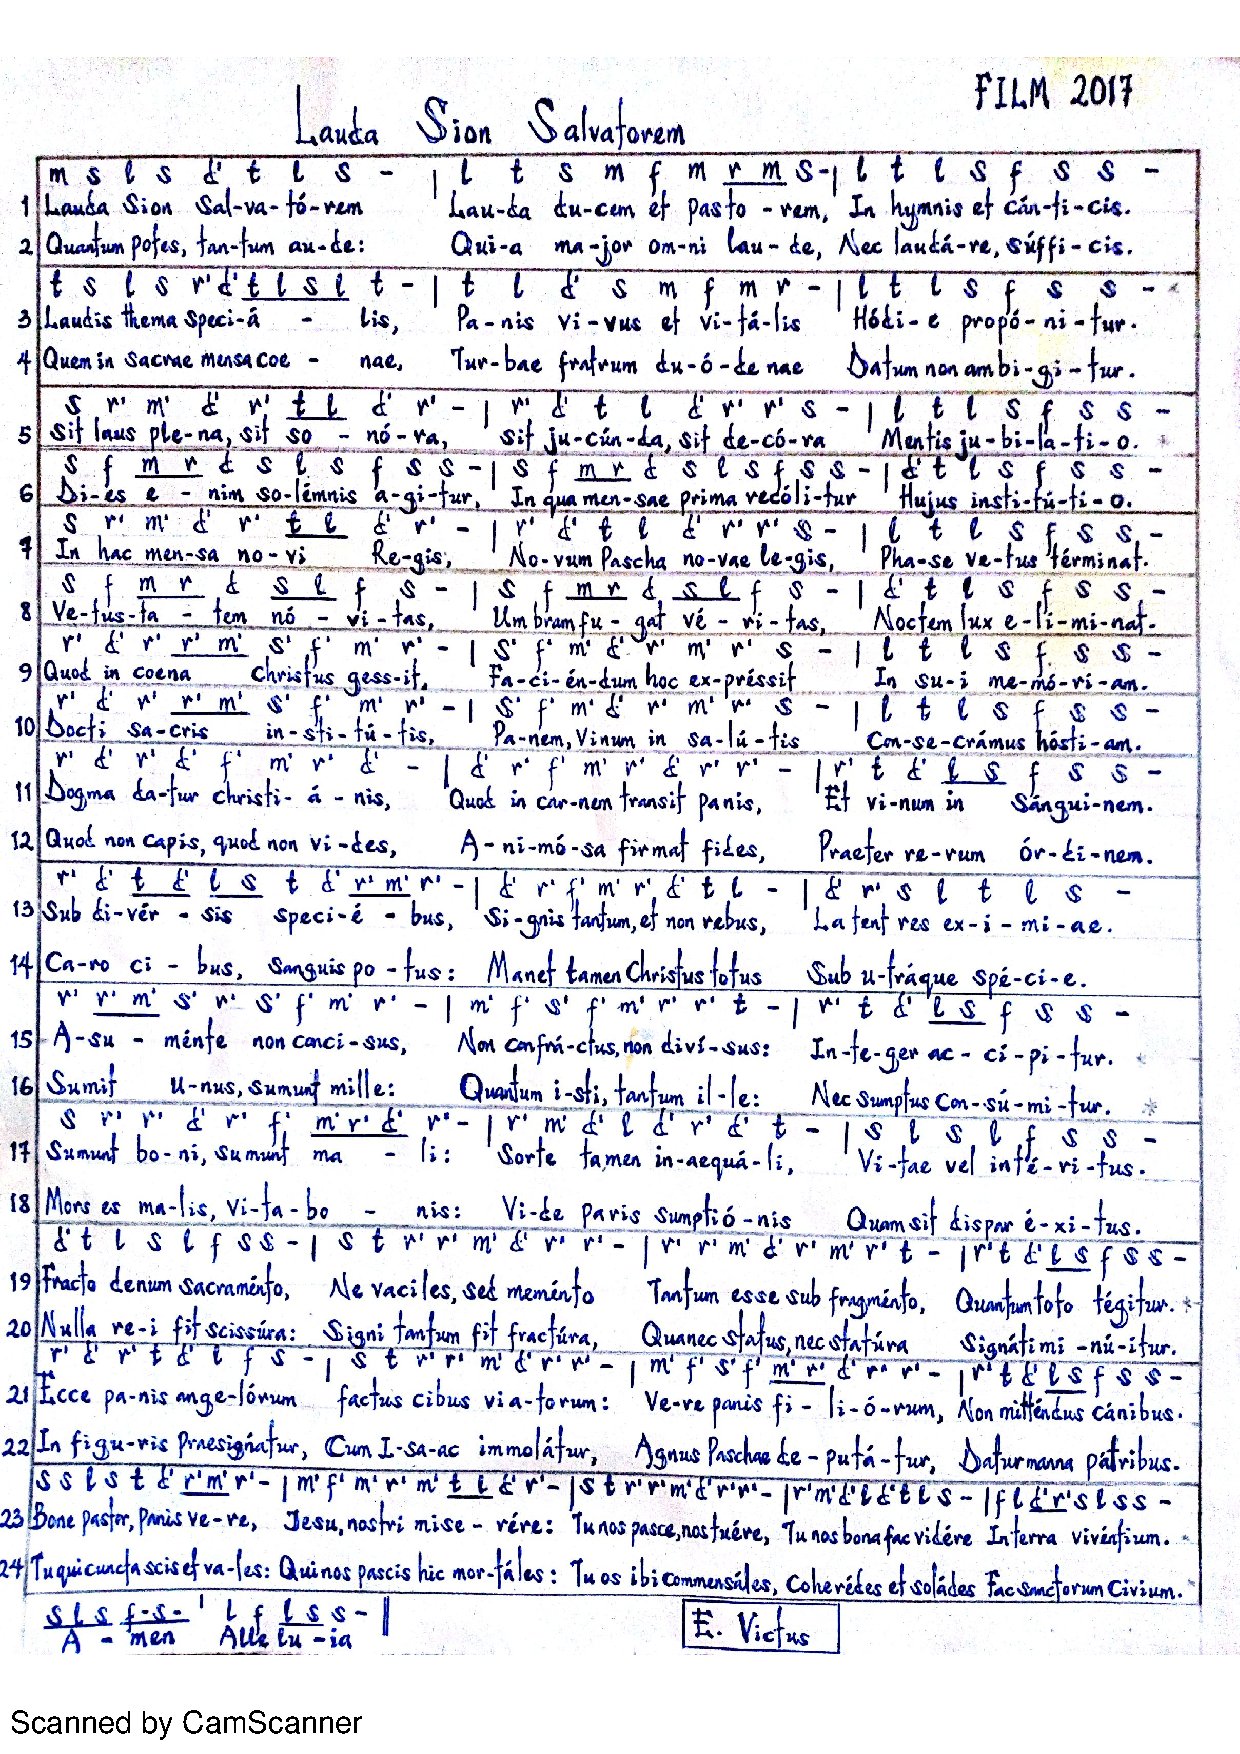 FILM 2017
Lauda Sion Salvatorem
m s l s d' t l s - | l t s m f m r m s - | l t l s f s s -
1 Lauda Sion Sal-va-tó-rem Lau-da du-cem et pasto-rem, In hymnis et cán-ti-cis.
2 Quantum potes, tan-tum au-de: Qui-a ma-jor om-ni lau-de, Nec laudá-re, súffi-cis.
t s l s r' d' t l s l t - | t l d' s m f m r - | l t l s f s s -
3 Laudis thema speci-á - lis, Pa-nis vi-vus et vi-tá-lis Hódi-e propó-ni-tur.
4 Quem in sacrae mensa coe - nae, Tur-bae fratrum du-ó-de nae Datum non am bi-gi-tur.
s r' m' d' r' t l d' r' - | r' d' t l d' r' r' s - | l t l s f s s -
5 Sit laus ple-na, sit so - nó-ra, Sit ju-cún-da, sit de-có-ra Mentis ju-bi-la-ti-o.
s f m r d s l s f s s - | s f m r d s l s f s s - | d' t l s f s s -
6 Di-es e - nim so-lémnis a-gi-tur, In qua men-sae prima recóli-tur Hujus insti-tú-ti-o.
s r' m' d' r' t l d' r' - | r' d' t l d' r' r' s - | l t l s f s s -
7 In hac men-sa no-vi Re-gis, No-vum Pascha no-vae le-gis, Pha-se ve-tus términat.
s f m r d s l f s - | s f m r d s l f s - | d' t l s f s s -
8 Ve-tus-ta - tem nó - vi-tas, Um bram fu - gat vé - ri-tas, Noctem lux e-li-mi-nat.
r' d' r' r' m' s' f' m' r' - | s' f' m' d' r' m' r' s - | l t l s f s s -
9 Quod in coena Christus gess-it, Fa-ci-én-dum hoc ex-préssit In su-i me-mó-ri-am.
r' d' r' r' m' s' f' m' r' - | s' f' m' d' r' m' r' s - | l t l s f s s -
10 Docti sa-cris in-sti-tú-tis, Pa-nem, Vinum in sa-lú-tis Con-se-crámus hósti-am.
r' d' r' d' f' m' r' d' - | d' r' f' m' r' d' r' r' - | r' t d' l s f s s -
11 Dogma da-tur christi-á-nis, Quod in car-nem transit panis, Et vi-num in Sángui-nem.
12 Quod non capis, quod non vi-des, A-ni-mó-sa firmat fides, Praeter re-rum ór-di-nem.
r' d' t d' l s t d' r' m' r' - | d' r' f' m' r' d' t l - | d' r' s l t l s -
13 Sub di-vér - sis speci-é - bus, Si-gnis tantum, et non rebus, La tent res ex-i-mi-ae.
14 Ca-ro ci-bus, Sanguis po-tus: Manet tamen Christus totus Sub u-tráque spé-ci-e.
r' r' m' s' r' s' f' m' r' - | m' f' s' f' m' r' r' t - | r' t d' l s f s s -
15 A-su - ménte non conci-sus, Non confrá-ctus, non diví-sus: In-te-ger ac-cí-pi-tur.
16 Sumit u-nus, sumunt mille: Quantum i-sti, tantum il-le: Nec sumptus con-sú-mi-tur.
s r' r' d' r' f' m' r' d' r' - | r' m' d' l d' r' d' t - | s l s l f s s -
17 Sumunt bo-ni, sumunt ma - li: Sorte tamen in-aequá-li, Vi-tae vel inté-ri-tus.
18 Mors es ma-lis, vi-ta-bo - nis: Vi-de paris sumptió-nis Quam sit dispar é-xi-tus.
d' t l s l f s s - | s t r' r' m' d' r' r' - | r' r' m' d' r' m' r' t - | r' t d' l s f s s -
19 Fracto denum sacraménto, Ne vaciles, sed meménto Tantum esse sub fragménto, Quantum toto tégitur.
20 Nulla re-i fit scissúra: Signi tantum fit fractúra, Quanec status, nec statúra Signáti mi-nú-itur.
r' d' r' t d' l f s - | s t r' r' m' d' r' r' - | m' f' s' f' m' r' d' r' r' - | r' t d' l s f s s -
21 Ecce pa-nis ange-lórum factus cibus via-torum: Ve-re panis fi - li-ó-rum, Non mitténdus cánibus.
22 In figu-ris Praesignátur, Cum I-sa-ac immolátur, Agnus Paschae de-putá-tur, Datur manna pátribus.
s s l s t d' r' m' r' - | m' f' m' r' m' t l d' r' - | s t r' r' m' d' r' r' - | r' m' d' l d' t l s - | f l d' r' s l s s -
23 Bone pastor, panis ve-re, Jesu, nostri mise-rére: Tu nos pasce, nos tuére, Tu nos bona fac vidére In terra vivéntium.
24 Tu qui cuncta scis et va-les: Qui nos pascis hic mor-táles: Tu os ibi commensáles, Coherédes et soládes Fac sanctorum Civium.
s l s f - s - ' l f l s s - ||
A - men Alle lu-ia
E. Victus
Scanned by CamScanner